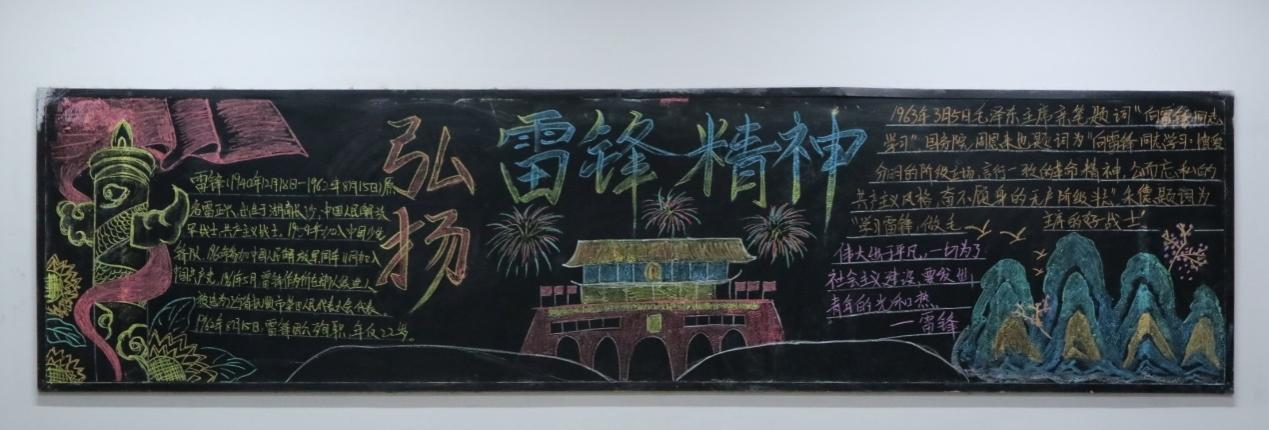 弘扬
雷锋精神
雷锋(1940年12月18日—1962年8月15日)原
名雷正兴,出生于湖南长沙,中国人民解放
军战士,共产主义战士,1949年加入中国少先
1960年参加中国人民解放军同年11月加入
中国共产党,1961年5月雷锋作为所在部队候选人
被选为抚顺市第四届人民代表大会代表,
1962年8月15日,雷锋因公殉职,年仅22岁。
1963年3月5日毛泽东主席亲笔题词"向雷锋同志
学习"国务院周恩来也题词为"向雷锋同志学习:憎爱
分明的阶级立场,言行一致的革命精神,公而忘私的
共产主义风格,奋不顾身的无产阶级斗志"朱德题词为
学习雷锋,做毛主席的好战士!
伟大出于平凡,一切为了
社会主义建设,要发出
青年的光和热。
—雷锋